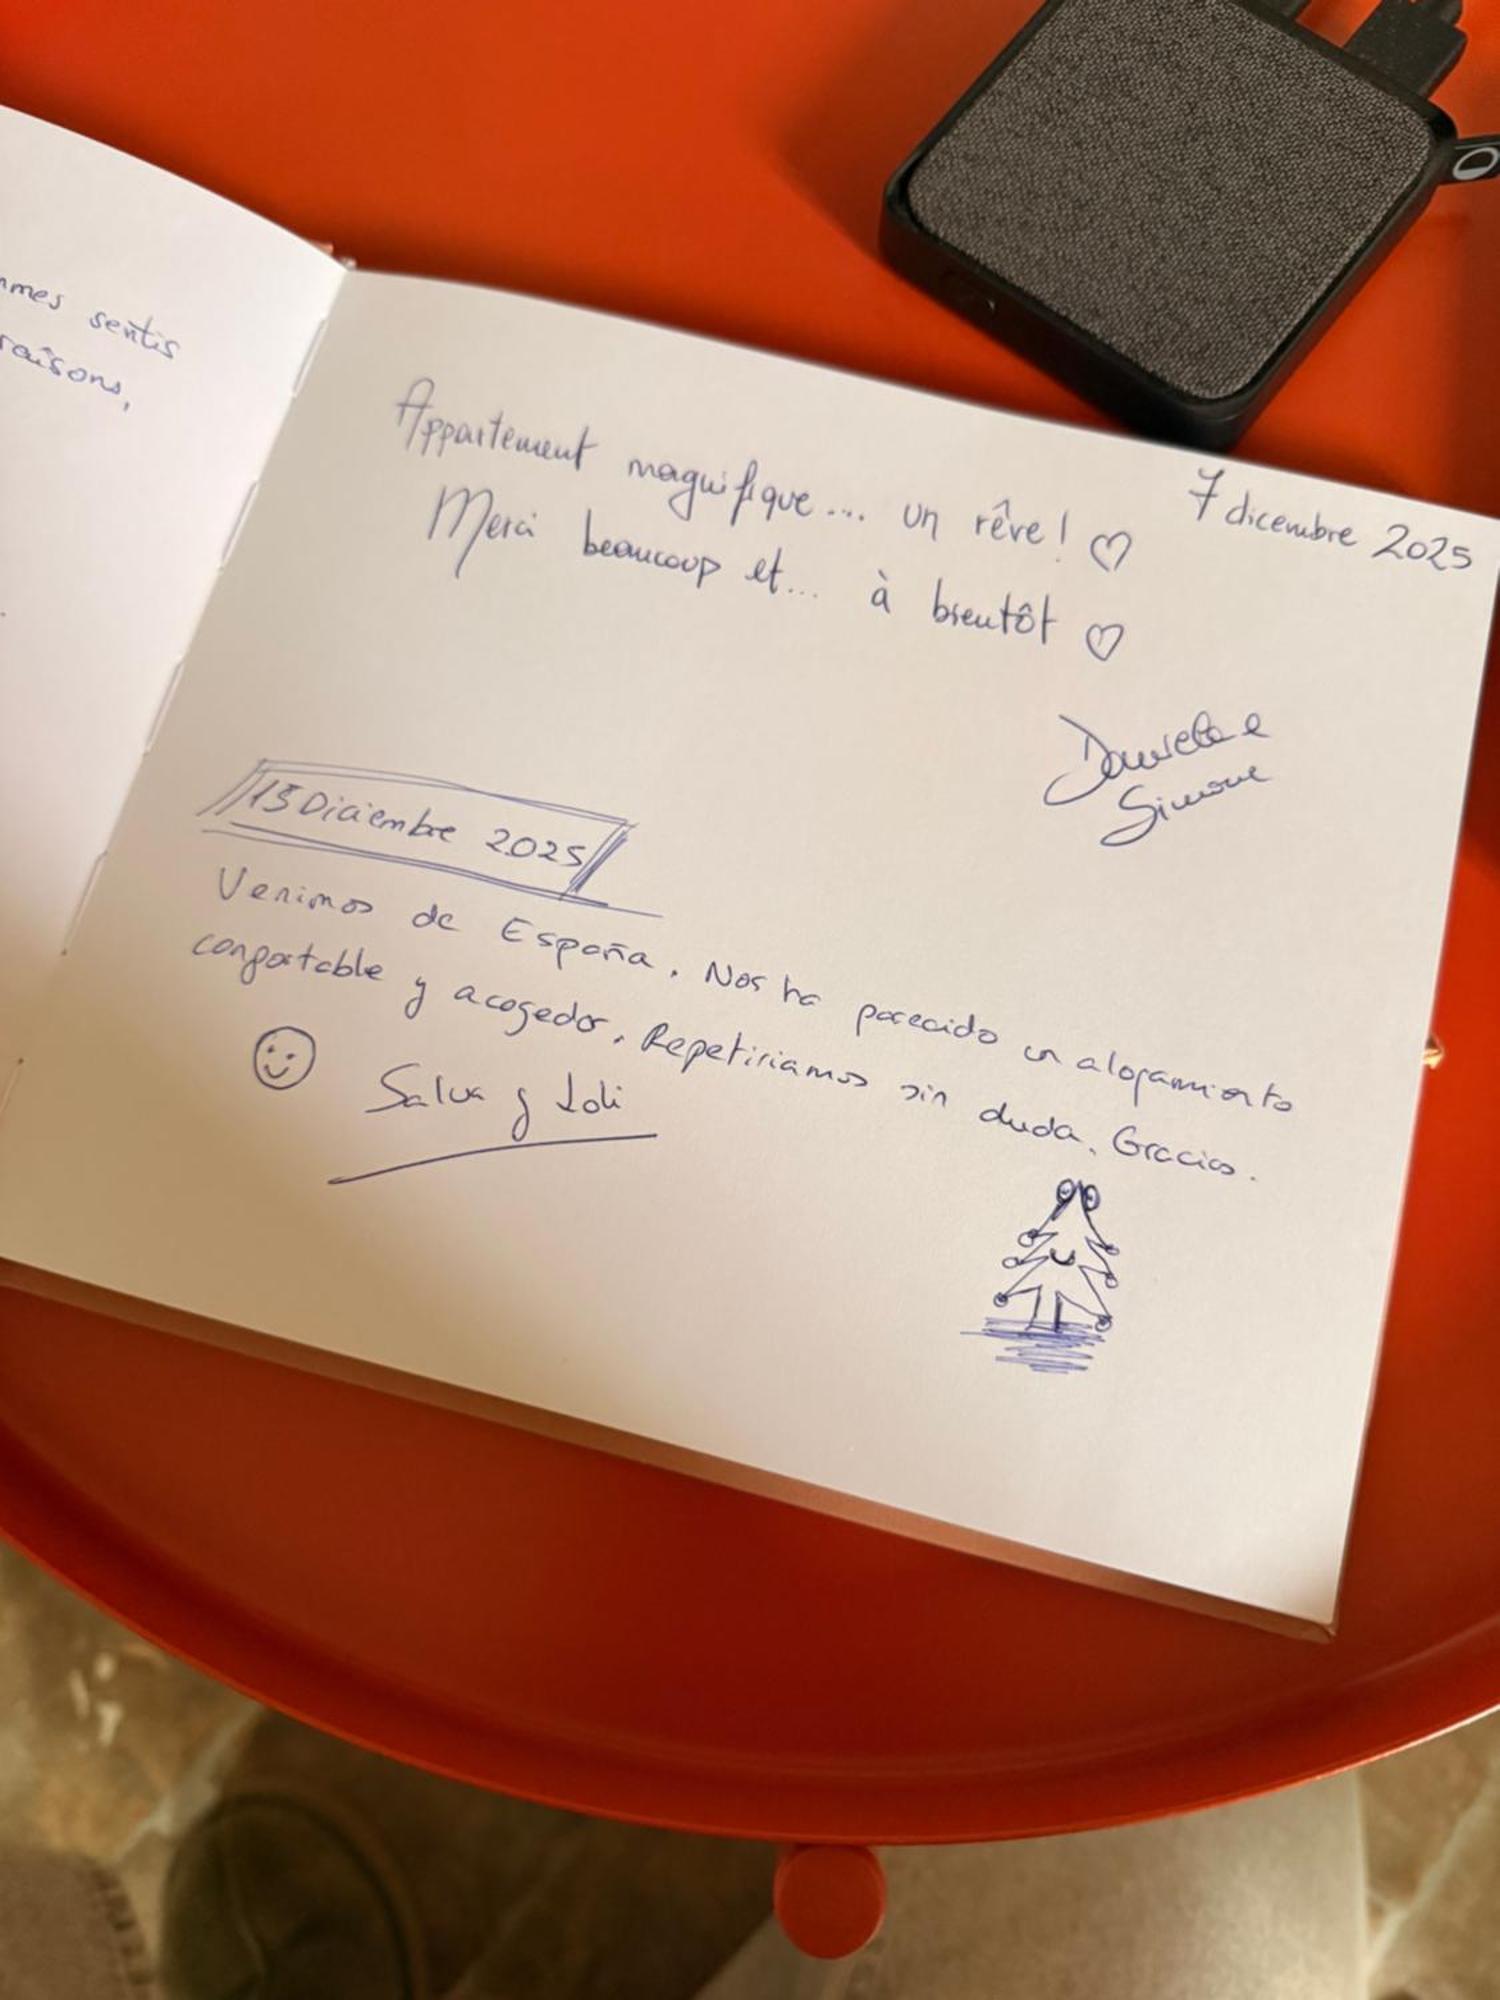 mmes sentis
raisons,
7 dicembre 2025
Appartement magnifique... un rêve! ♡
Merci beaucoup et... à bientôt ♡
Daniela e
Simone
13 Diciembre 2025
Venimos de España. Nos ha parecido un alojamiento
confortable y acogedor. Repetiriamos sin duda. Gracias.
Salva y Loli